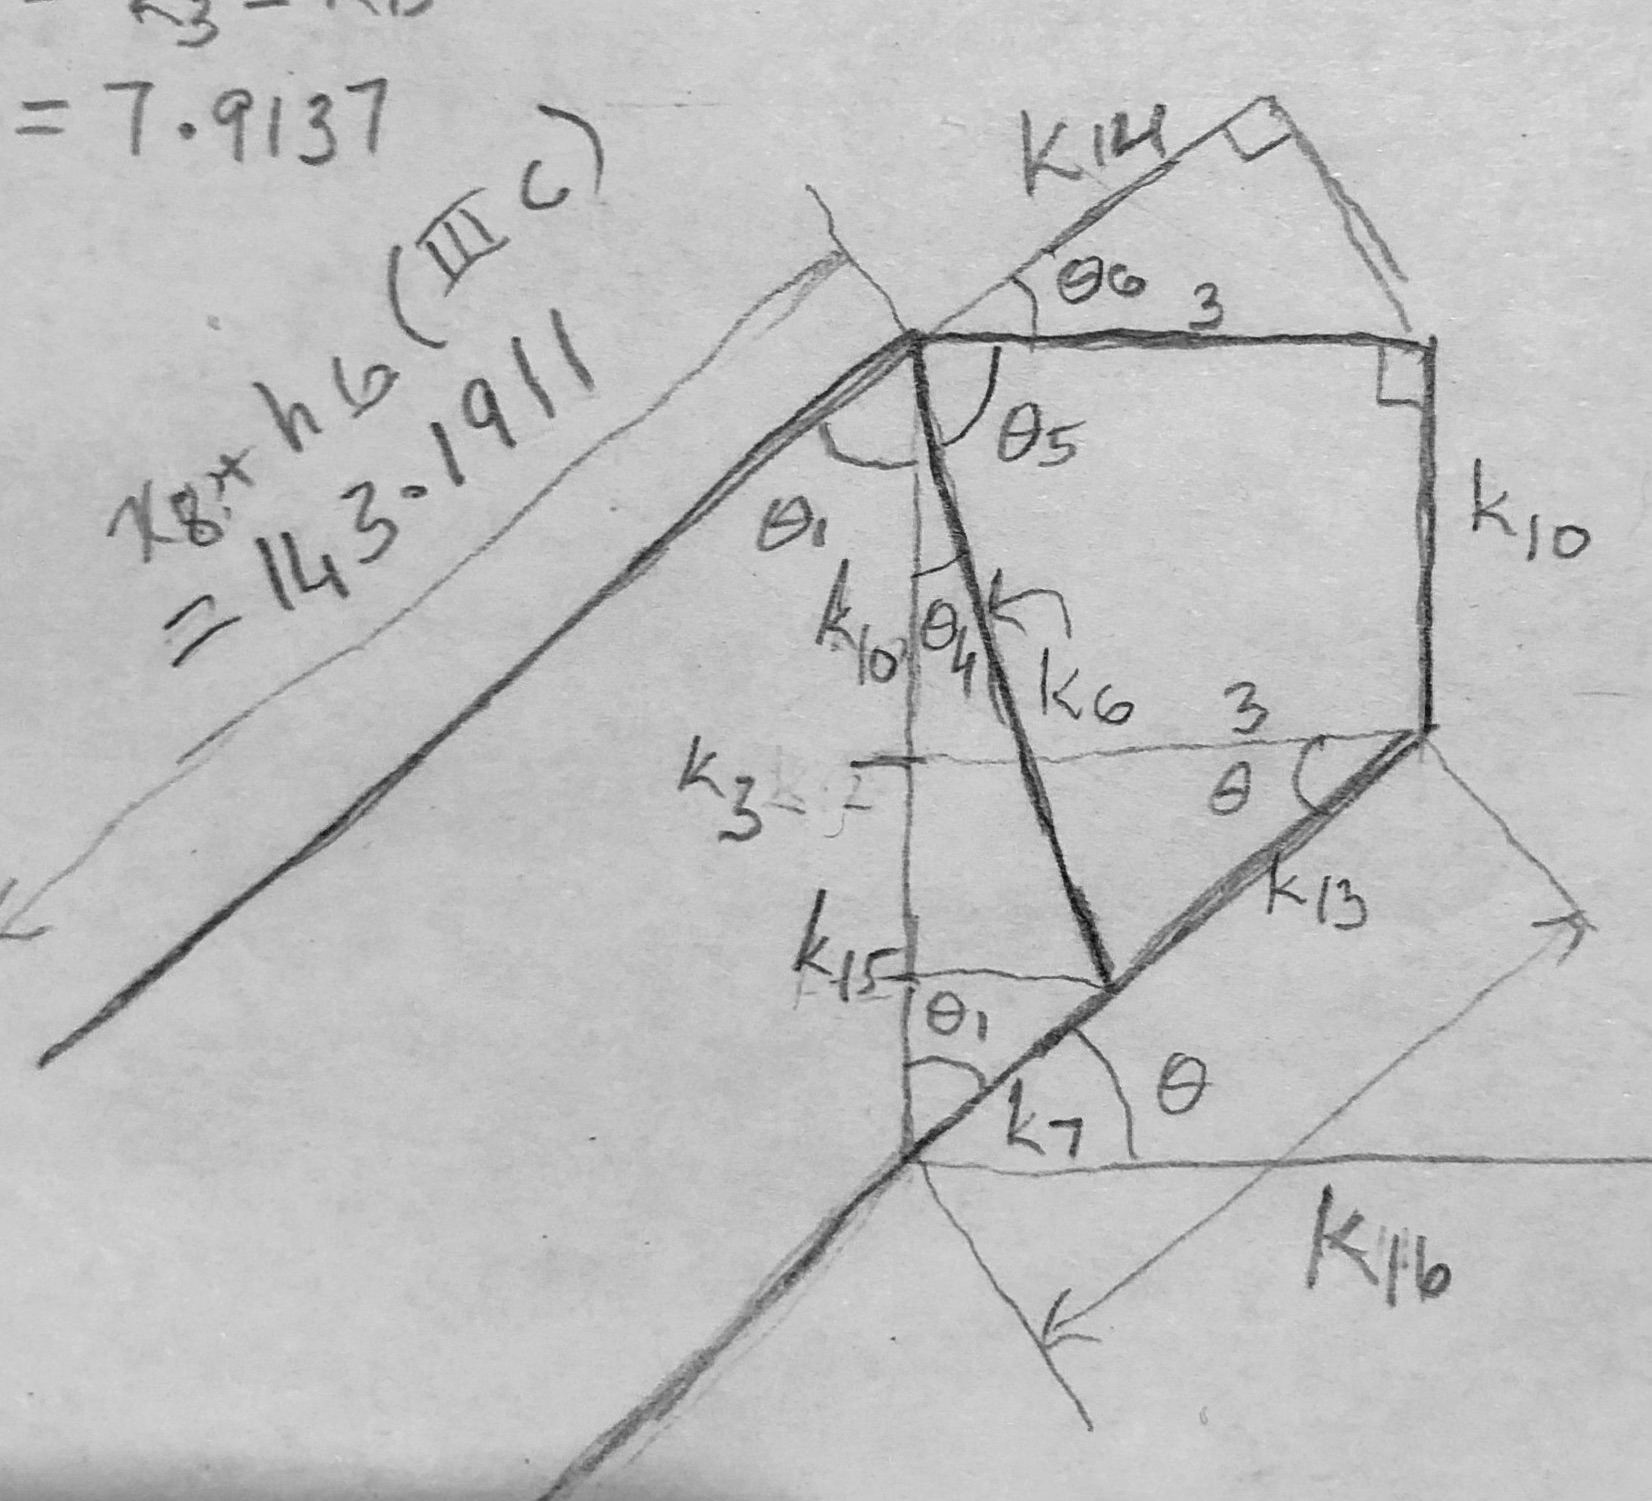 = 7.9137
x8 + h6 (III C)
= 143.1911
K14
θ6
3
θ5
k10
θ1
k10
θ4
k6
3
k3
θ
k13
k15
θ1
θ
k7
K16